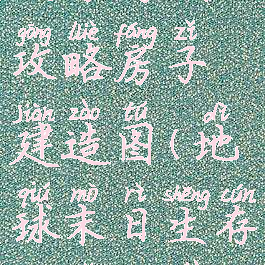 gōng lüè fáng zǐ
攻略房子
jiàn zào tú dì
建造图(地
qiú mò rì shēng cún
球末日生存